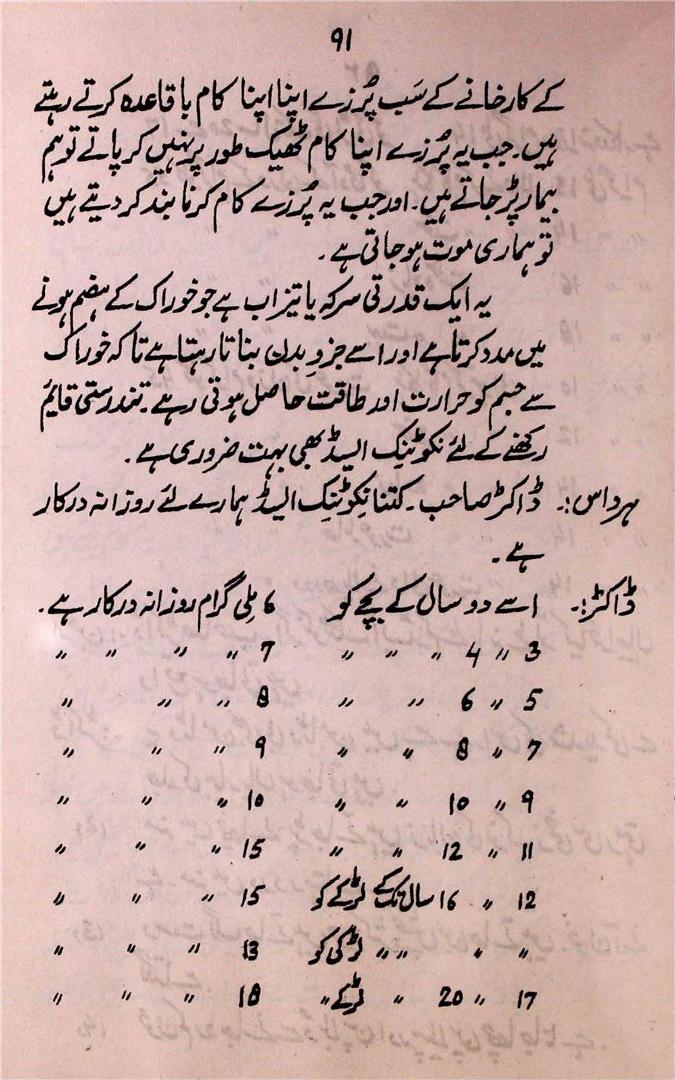 ۹۱
کے کارخانے کے سَب پُرزے اپنا اپنا کام باقاعدہ کرتے رہتے
ہیں۔ جب یہ پُرزے اپنا کام ٹھیک طور پر نہیں کر پاتے تو ہم
بیمار پڑ جاتے ہیں۔ اور جب یہ پُرزے کام کرنا بند کر دیتے ہیں
تو ہماری موت ہو جاتی ہے۔
یہ ایک قدرتی سرکہ یا تیزاب ہے جو خوراک کے ہضم ہونے
میں مدد کرتا ہے اور اسے جزوِ بدن بناتا رہتا ہے تاکہ خوراک
سے جسم کو حرارت اور طاقت حاصل ہوتی رہے۔ تندرستی قایٔم
رکھنے کے لئے نکوٹینِک ایسڈ بھی بہت ضروری ہے۔
ہرداس:۔ ڈاکٹر صاحب۔ کتنا نِکوٹینِک ایسڈ ہمارے لئے روزانہ درکار
ہے۔
ڈاکٹر:۔ 1 سے دو سال کے بچے کو 6 مِلی گرام روزانہ درکار ہے۔
3 〃 4 〃 〃 〃 7 〃 〃 〃 〃
5 〃 6 〃 〃 8 〃 〃 〃
7 〃 8 〃 〃 9 〃 〃 〃
9 〃 10 〃 〃 10 〃 〃 〃
11 〃 12 〃 〃 15 〃 〃 〃
12 〃 16 سال تک کے لڑکے کو 15 〃 〃 〃
〃 〃 〃 〃 لڑکی کو 13 〃 〃 〃
17 〃 20 〃 لڑکے 〃 18 〃 〃 〃